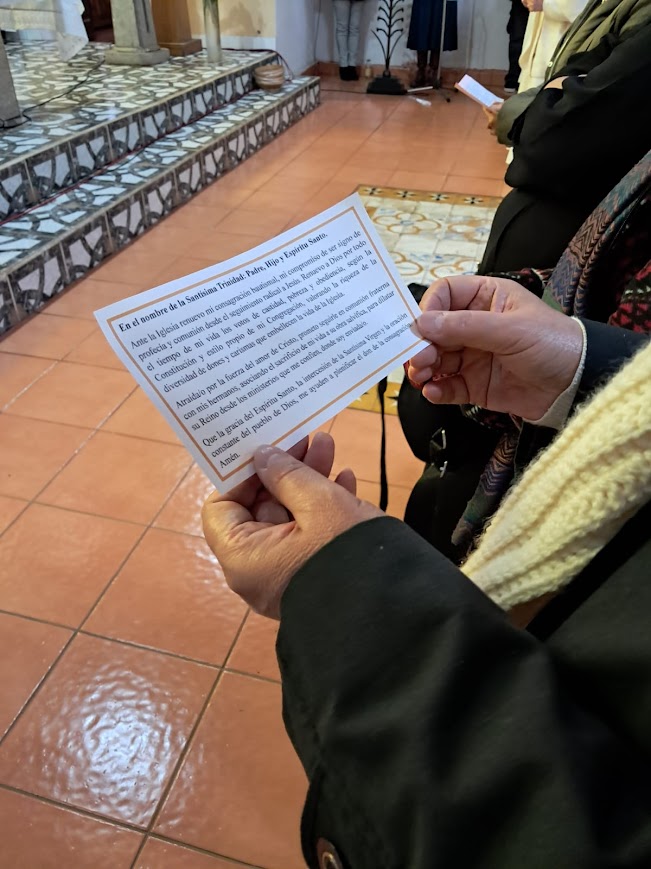 En el nombre de la Santísima Trinidad: Padre, Hijo y Espíritu Santo.
Ante la Iglesia renuevo mi consagración bautismal, mi compromiso de ser signo de
profecía y comunión desde el seguimiento radical a Jesús. Renuevo a Dios por todo
el tiempo de mi vida los votos de castidad, pobreza y obediencia, según la
Constitución y estilo propio de mi Congregación, valorando la riqueza de la
diversidad de dones y carismas que embellecen la vida de la Iglesia.
Atraída/o por la fuerza del amor de Cristo, prometo seguirlo en comunión fraterna
con mis hermanos, asociando el sacrificio de mi vida a su obra salvífica, para dilatar
su Reino desde los ministerios que me confíen, donde soy enviado/a.
Que la gracia del Espíritu Santo, la intercesión de la Santísima Virgen y la oración
constante del pueblo de Dios, me ayuden a planificar el don de la consagración
Amén.